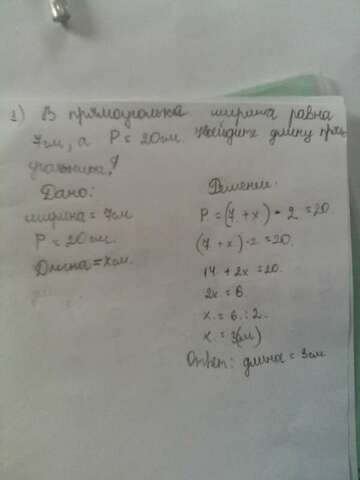 1) В прямоугольнике ширина равна
7см, а P = 20см. Найдите длину прям
угольника!
Дано:
ширина = 7см
P = 20см.
Длина = xсм.
Решение:
P = (7 + x) • 2 = 20.
(7 + x)•2 = 20.
14 + 2x = 20.
2x = 6
x = 6 : 2.
x = 3(м)
Ответ: длина = 3см